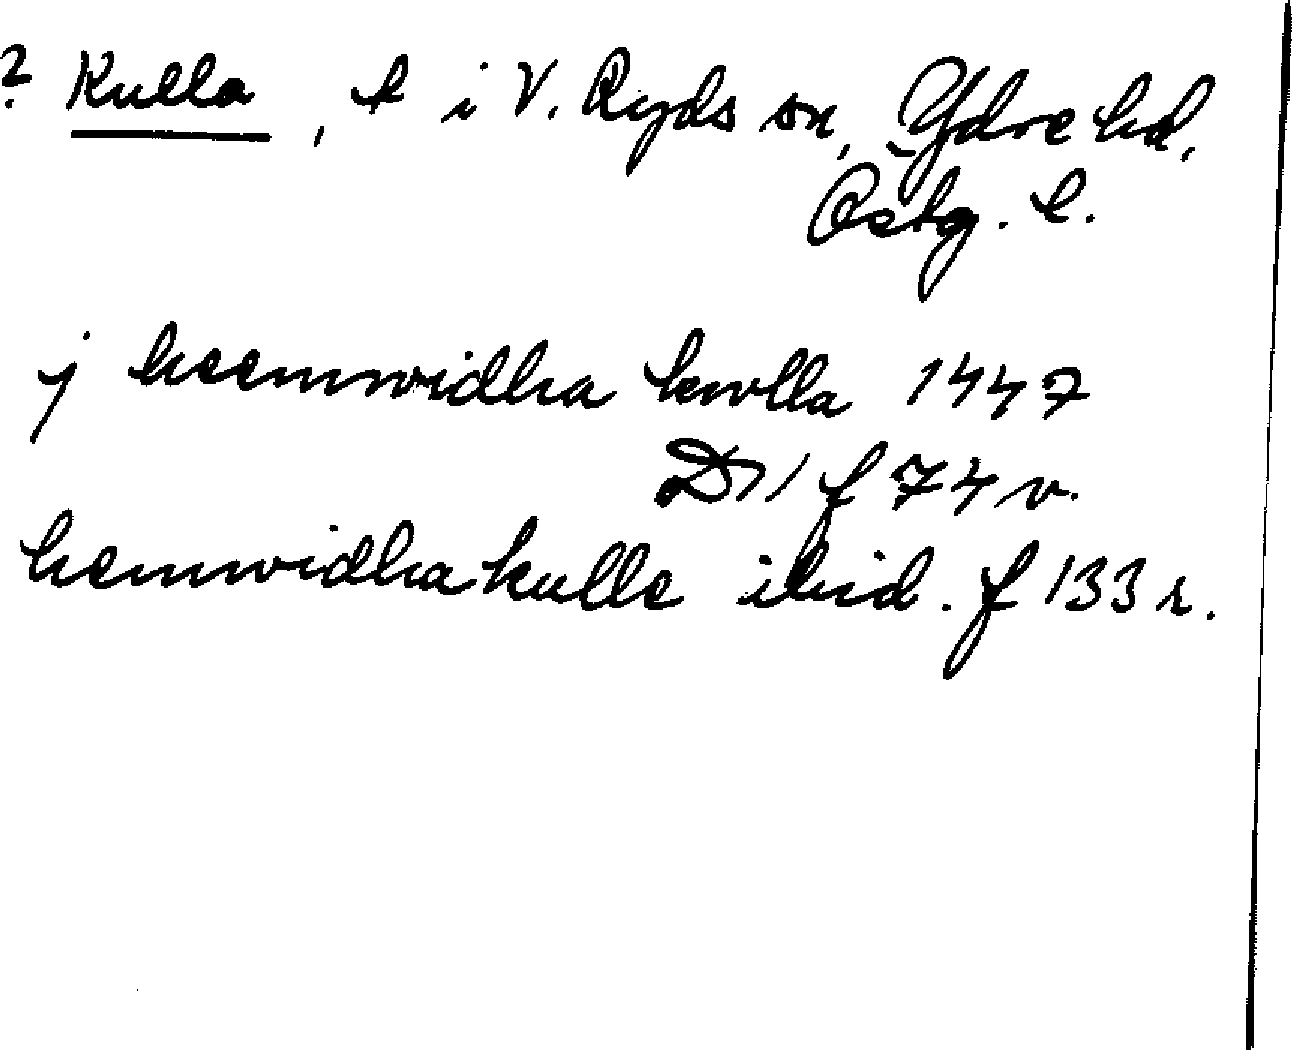 ? Kulla, t i V. Ryds sn, Ydre hd,
Östg. l.
j heemwidha kwlla 1447
D 11 f 74 v.
hemwidha kulle ibid. f 133 r.